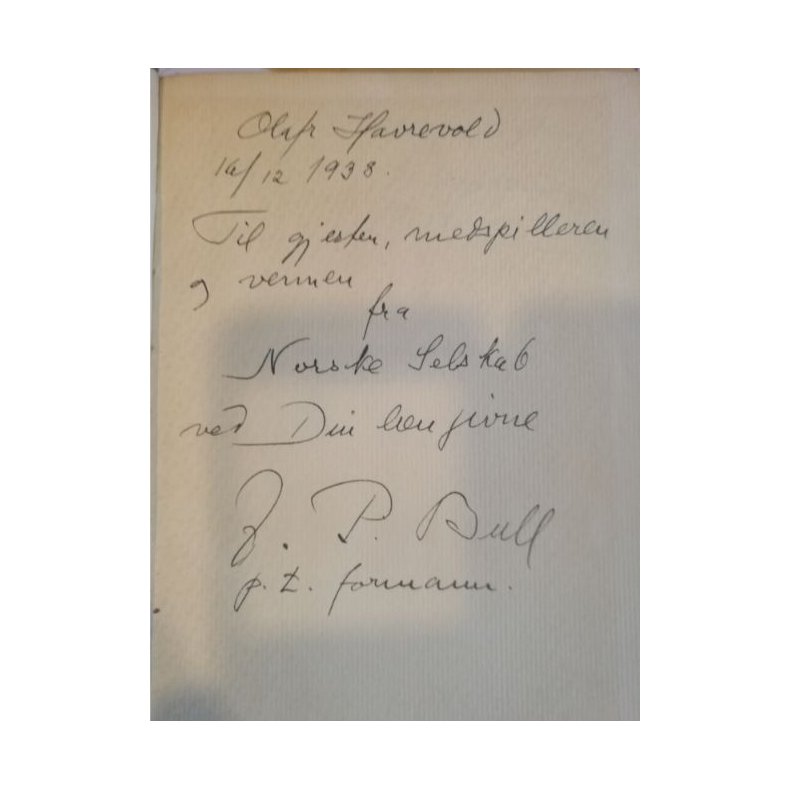 Olafr Havrevold
16/12 1938.
Til gjesten, medspilleren
og vennen
fra
Norske Selskab
ved Din hengivne
J. P. Bull
p.t. formann.